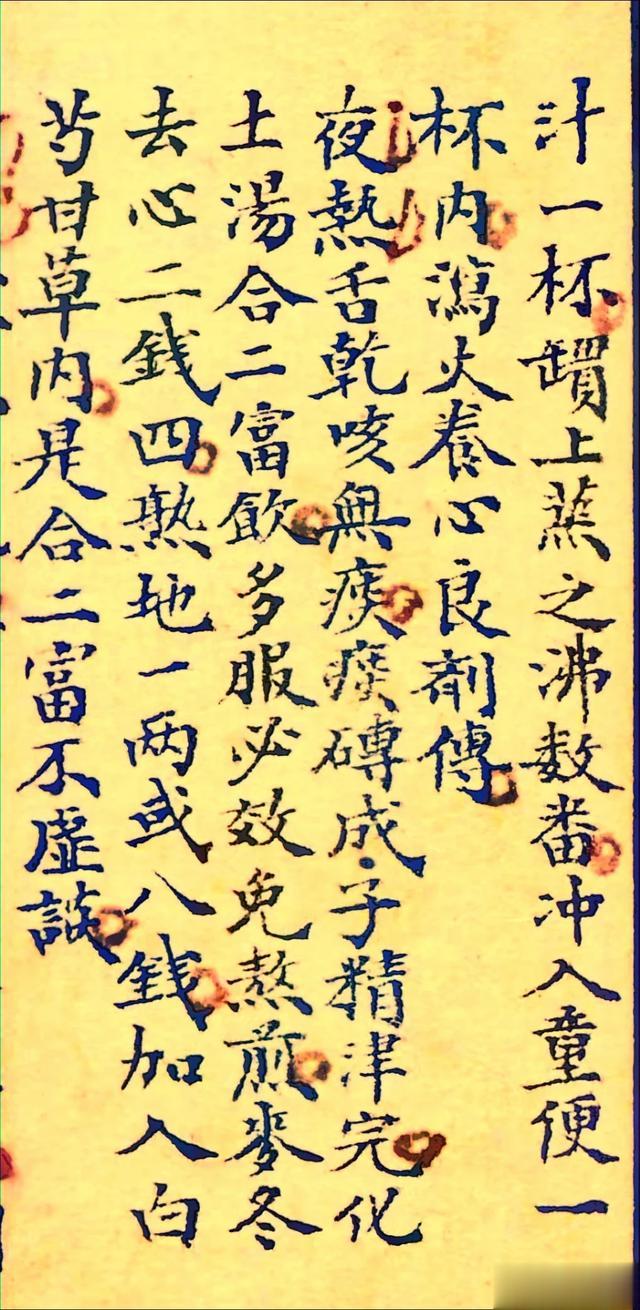 汁一杯罐上蒸之沸数番冲入童便一
杯内瀉火養心良剤傳
夜熱舌乾咳無痰痰磚成子精津完化
土湯合二富飲多服必效免熬煎麥冬
去心二錢四熟地一两或八錢加入白
芍甘草内是合二富不虛談